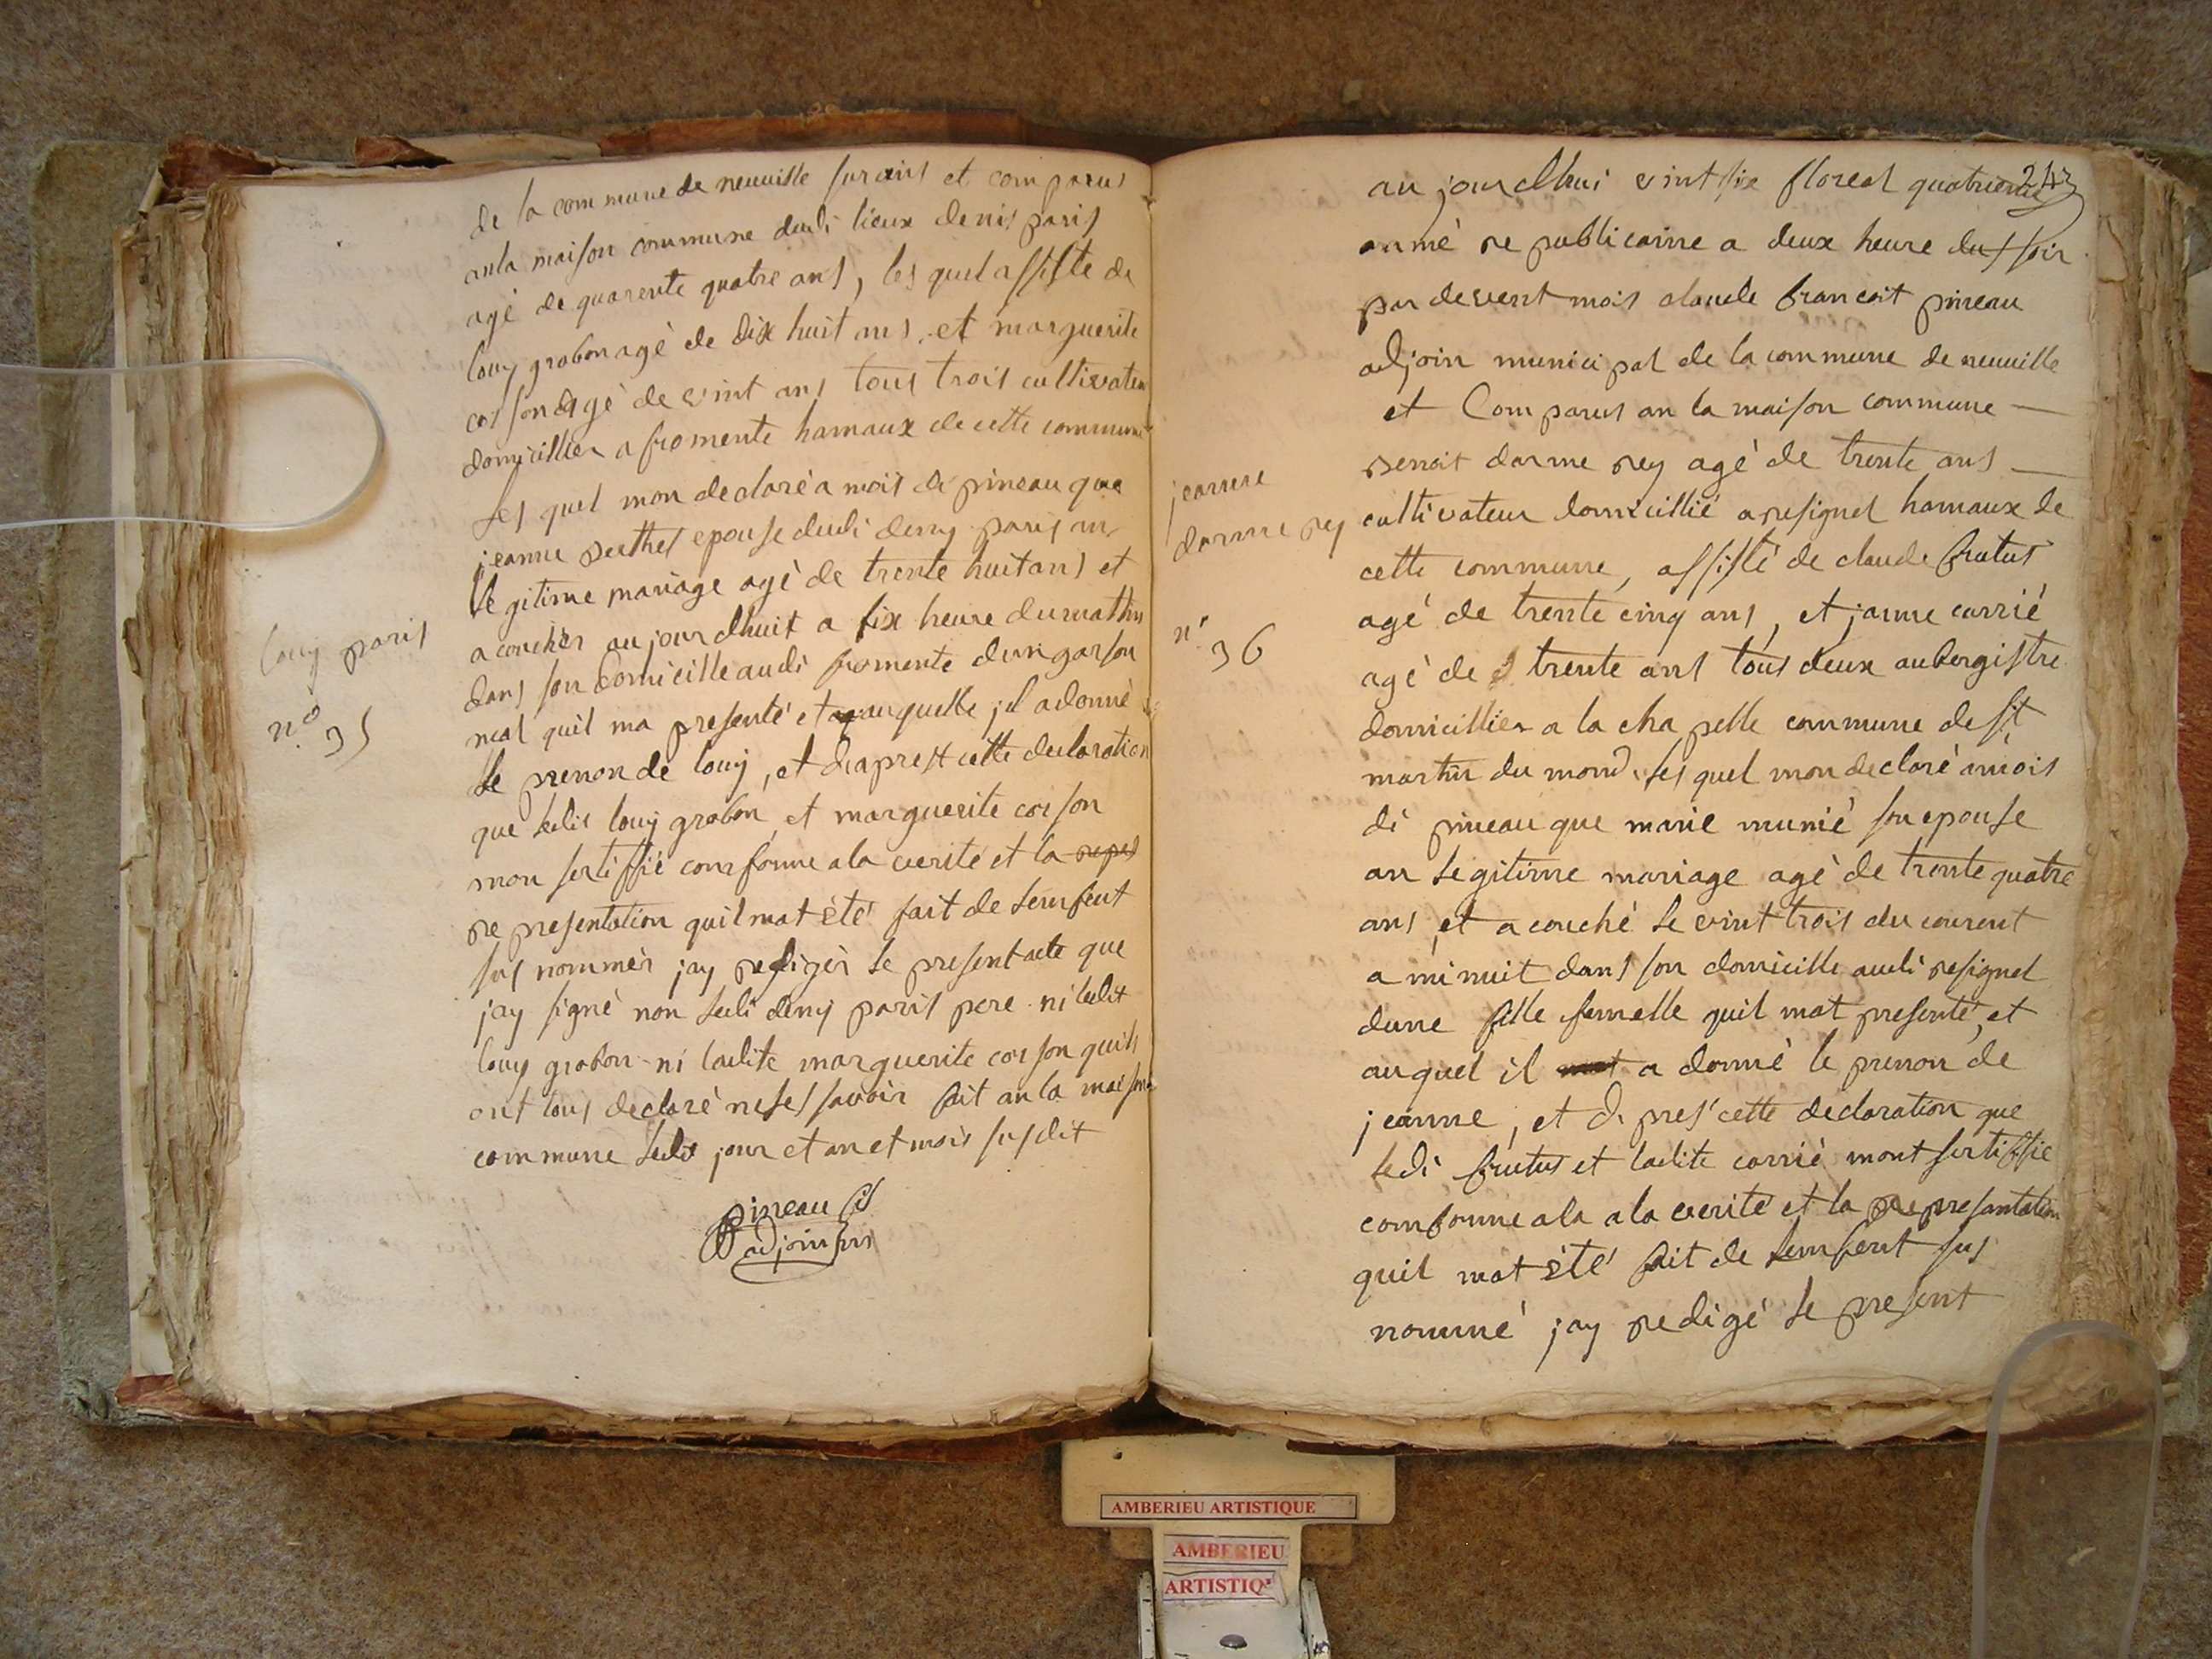 de la commune de neuville sur ains et comparus
an la maison commune dudi lieux denis paris
agé de quarente quatre ans, les quel assiste de
louy grobon agè de dix huit ans et marguerite
corson agé de vint ans tous trois cultivateu
domicillier a fromente hamaux de cette commune
les quel mon declaré a mois di pineau que
jeanne perthes epouse dudi deny paris an
legitime mariage agè de trente huit ans et
acouchèr aujourdhuit a six heure du mattin
dans son domicille audi fromente dun garson
mal quil ma presenté et auquelle jl a donné
le prenon de louy, et diaprest cette declaration
que ledis louy grobon et marguerite corson
mon sertiffié comforme a la verite et la repres
representation quil mat été fait de lemfent
sus nommèr jay redigèr le present acte que
jay signé non ledi deny paris pere ni ledit
louy grobon ni ladite marguerite corson quils
ont tous declaré ne les savoir fait an la maison
commune ledit jour et an et mois susdit
pineau
adjoin
louy paris
n.o
35
243
aujourdhui vint six floreal quatrieme
anné republicaine a deux heure du soir
par devent mois claude francoit pineau
adjoin municipal de la commune de neuville
et Comparus an la maison commune
benoit darme rey agè de trente ans
cultivateur domicillié a resignel hamaux de
cette commune, assistè de claude frutus
agé de trente cinq ans, et janne carrié
agè de trente ans tous deux aubergistre
domicillier a la chapelle commune de st
martin du mond les quel mon declaré a mois
di pineau que marie munié son epouse
an legitime mariage agè de trente quatre
ans, et a couché le vint trois du courent
a minuit dans son domicille audi resignel
dune fille femelle quil mat presenté, et
auquel il mat a donné le prenon de
jeanne, et di pres cette declaration que
ledi frutus et ladite carrié mont sertiffie
comforme a la a la verité et la represantation
quil mat été fait de lemfent sus
nommé jay redigé le present
jeanne
darme rey
n.o
36
AMBERIEU ARTISTIQUE
AMBERIEU
ARTISTIQ